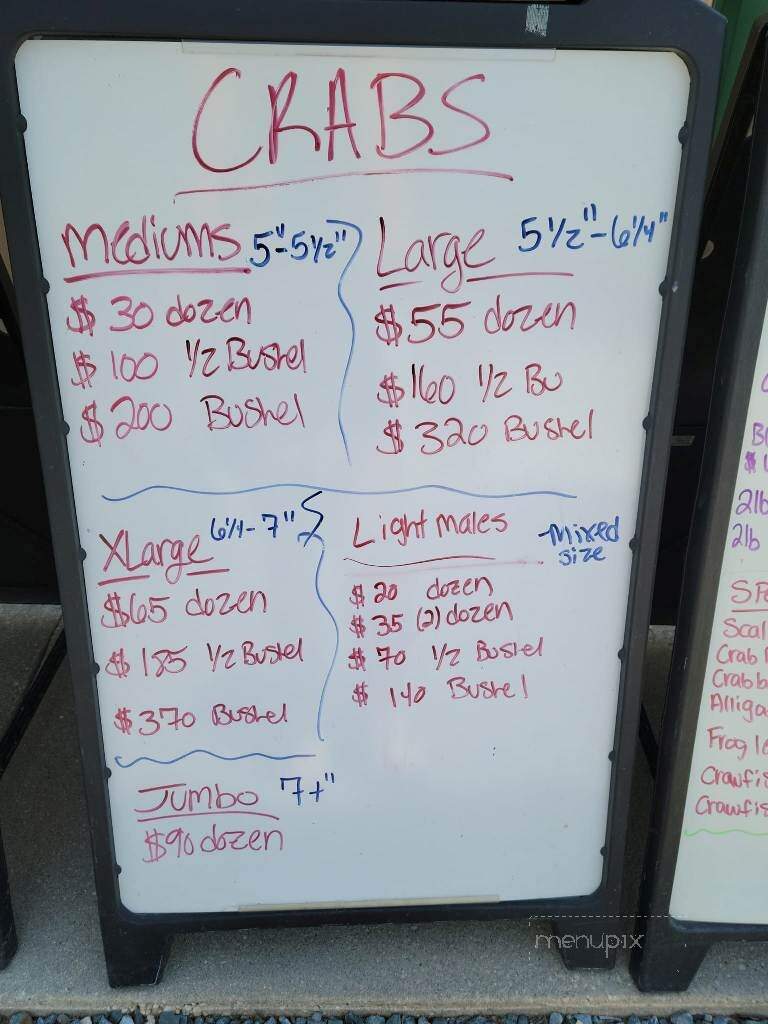 CRABS
Mediums 5"-5 1/2"
$30 dozen
$100 1/2 Bushel
$200 Bushel
Large 5 1/2"-6 1/4"
$55 dozen
$160 1/2 Bu
$320 Bushel
XLarge 6 1/4-7"
$65 dozen
$185 1/2 Bushel
$370 Bushel
Light males -Mixed size
$20 dozen
$35 (2) dozen
$70 1/2 Bushel
$140 Bushel
Jumbo 7+"
$90 dozen
2lb
2lb
Scal
Crab
Crab
Alliga
Frog le
Crawfis
Crawfis
menupix